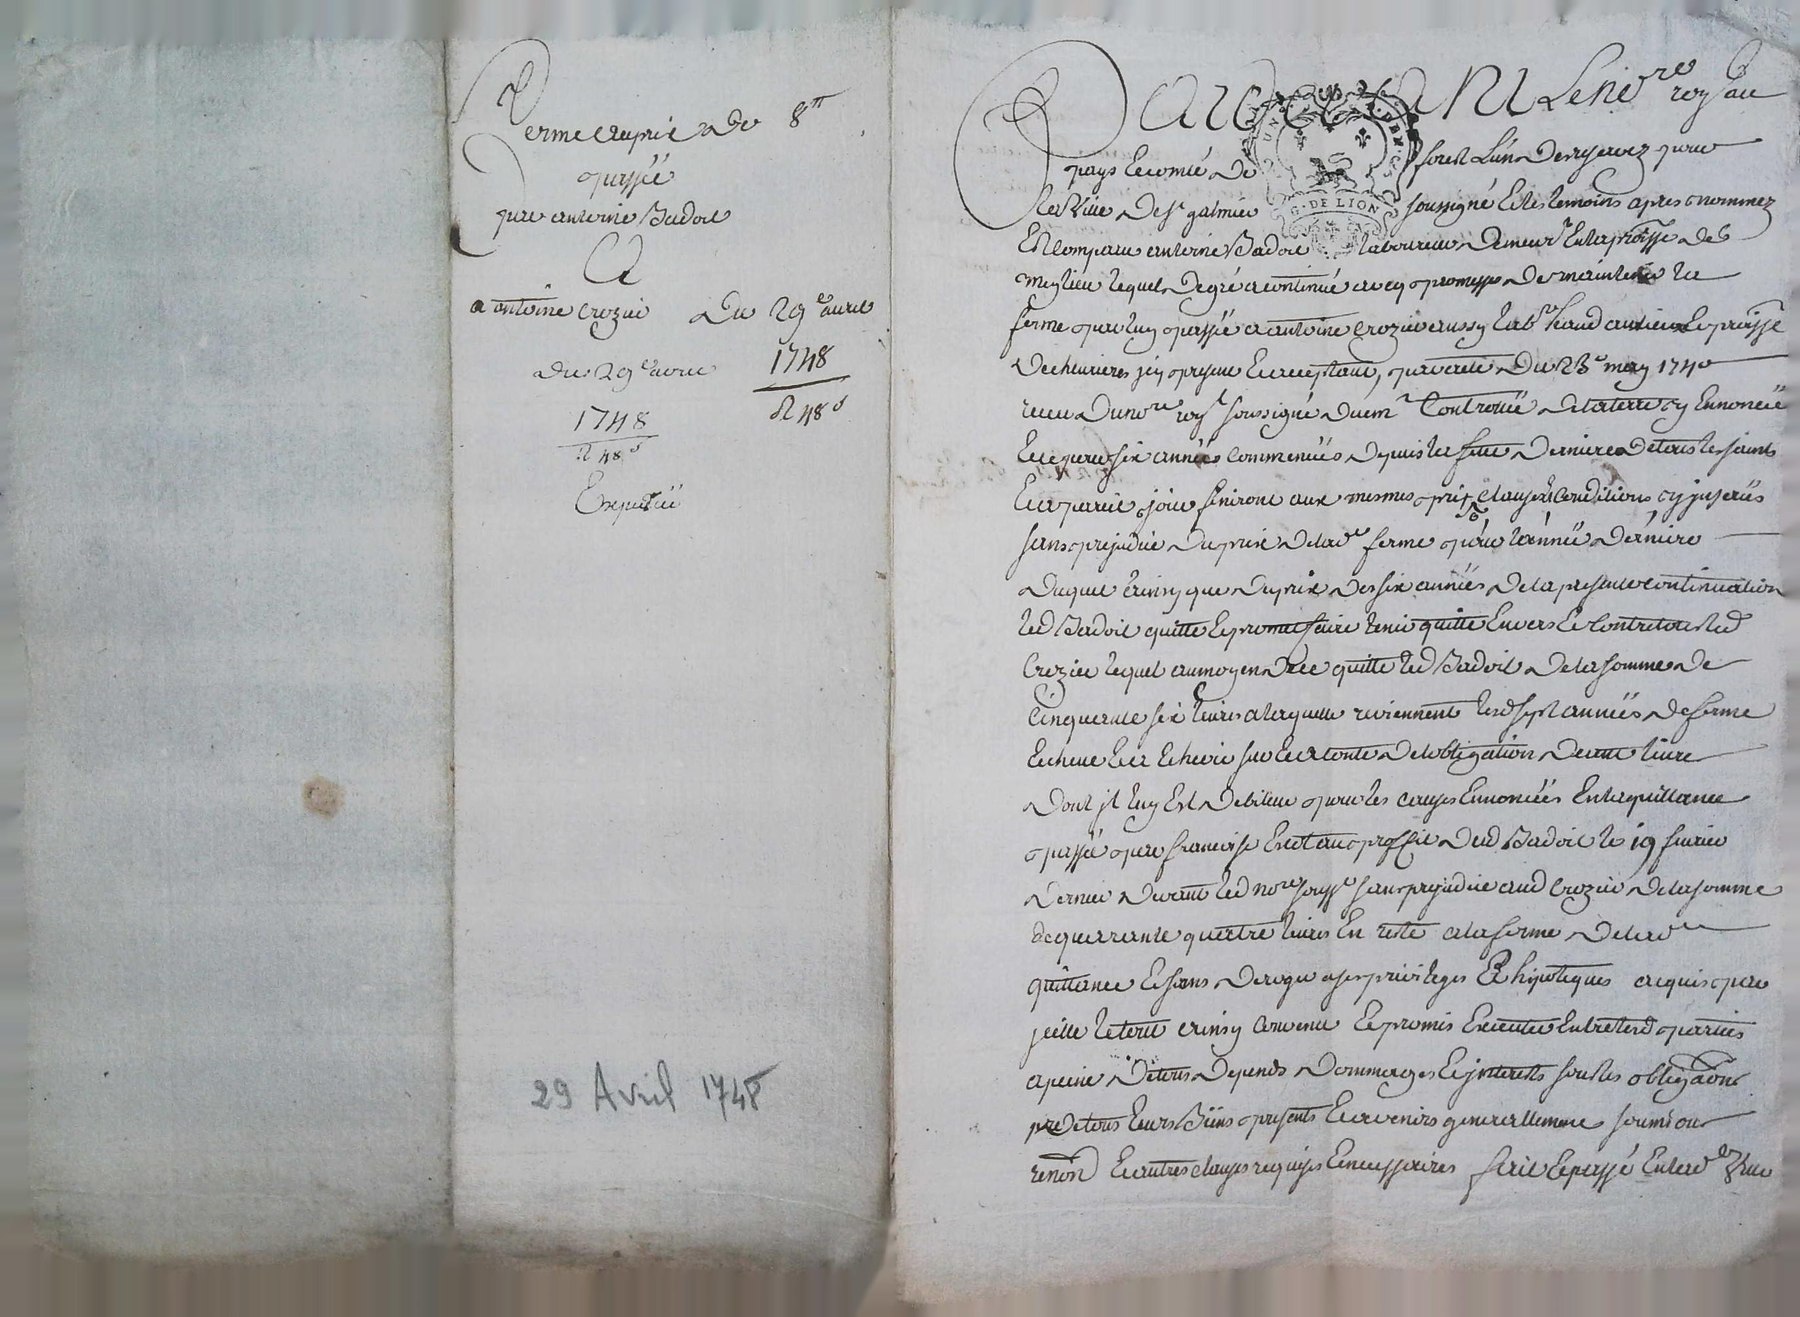 ferme au prix de 8ᵗᵗ
passée
par antoine Badoit
A
a antoine Crozier
du 29ᵉ avril
1748
R 48ˢ
Expediée
Du 29ᵉ avril
1748
R 48ˢ
29 Avril 1748
Pardevant Le noʳᵉ royal au
pays et comté de forest L'un des reservez pour
la ville de Sᵗ galmier soussigné et les temoins apres nommez
Est comparu antoine Badoit laboureur demeurᵗ En la parroisse de
lequel de gré a continué avec promesse de maintenir la
ferme par luy passée a antoine Crozier aussy labʳ
de chevrieres jcy present et acceptant, par acte du 23ᵉ may 1740
receu du noʳᵉ royˡ soussigné duëmᵗ Controllé de la terre y Ennoncée
Et ce pour six années commencées depuis la fette derniere de tous les saints
Et a pareil jour finiront aux mesmes prix, clauses et conditions y jnserées
sans prejudice du prix de lad ferme pour l'année derniere
duquel ainsy que du prix des six années de la presente continuation
led Badoit quitte et promet faire tenir quitte Envers et contre tous led
Crozier lequel au moyen de ce quitte led Badoit de la somme de
Cinquante six livres a laquelle reviennent lesd sept années de ferme
Echeue et a Echeoir sur et a conte de l'obligation de livre
dont jl luy Est debiteur pour les causes Ennoncées En la quittance
passée par francoise au proffit dud Badoit le 19 fevrier
dernier devant led noʳᵉ soussᵉ sans prejudice aud Crozier de la somme
de quarante quatre livres En reste a la forme de lad
quittance et sans deroger a ses privileges Et hipoteques acquis par
jcelle le tout ainsy convenu et promis Executer Entre lesd parties
a peine de tous depends dommages et jnterests sous les obligaõns
de tous leurs Biens presents et avenirs generallement soumiõns
renonõn Et autres clauses requises et necessaires fait et passé En lad
G. DE LION